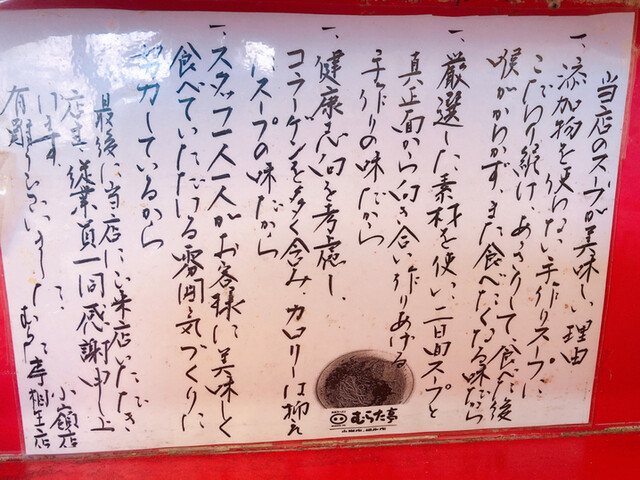 当店のスープが美味しい理由
一、添加物を使わない手作りスープに
こだわり続け、あっさりして、食べた後
喉がかわかず、また食べたくなる味だから
一、厳選した素材を使い、二日間スープと
真正面から向き合い作りあげる
手作りの味だから
一、健康志向を考慮し、
コラーゲンを多く含み カロリーは抑え
スープの味だから
一、スタッフ一人一人がお客様に美味しく
食べていただける雰囲気づくりに
努力しているから
最後に当店にご来店いただき
店主、従業員一同感謝申し上
います。
有難うございました。
むらた亭相生店
小嶺店
むらた亭